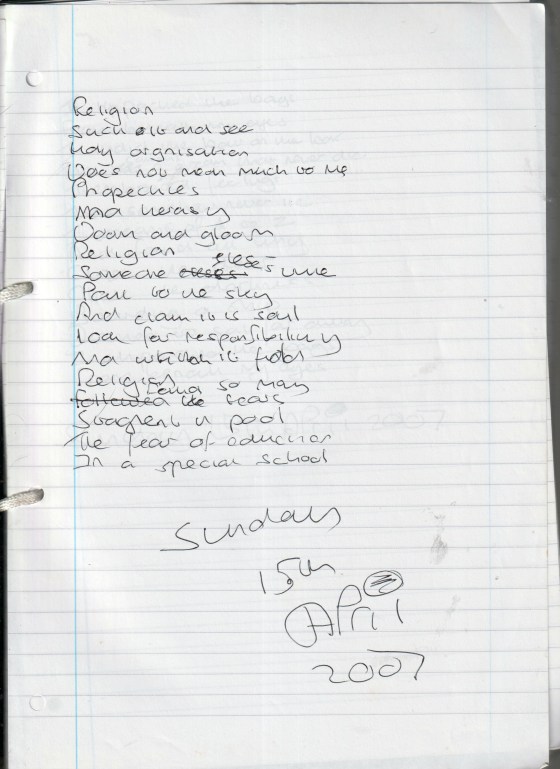 Religion
Such it and see
Holy orgnisation
Does not mean much to me
Phopechies
And herasy
Doom and gloom
Religion
Someone elese's time
Point to the sky
And claim it is soul
Look for responsibility
And which it fold
Religion
so many
followed the fears
Stagnent n pool
The fear of education
In a special school
Sunday
15th
April
2007